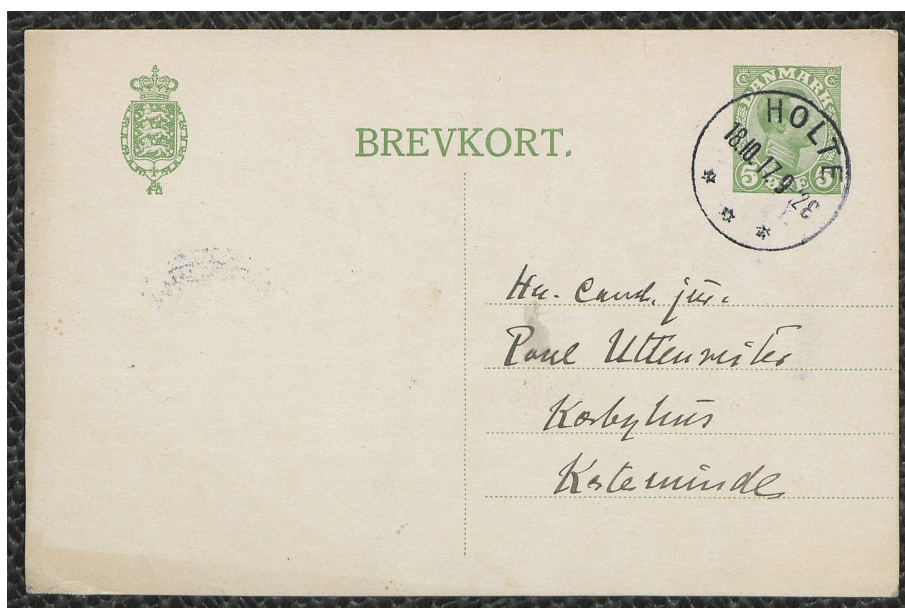 BREVKORT.
DANMARK
5 ØRE 5
HOLTE
18.10.17. 9-12E
Hr. Cand. jur.
Poul Uttenreiter
Kærbyhus
Kerteminde